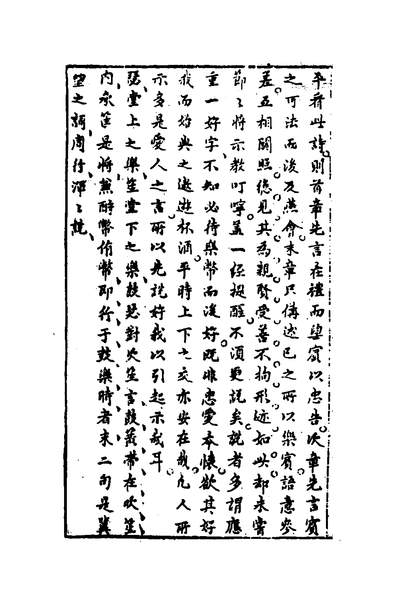 平看此詩則首章先言在禮而望賓以忠告次章先言賓
之可法而後及燕會末章只備述已之所以樂賓語意參
差互相關照總見其為親賢受善不拘形迹如此却未嘗
節〻將示教叮嚀蓋一經提醒不須更說矣說者多謂應
重一好字不知必待樂幣而後好既非忠愛本懷欲其好
我而始與之遨遊杯酒平時上下之交亦安在哉凡人所
示多是愛人之言所以先說好我以引起示我耳
瑟堂上之樂笙堂下之樂鼓瑟對吹笙言鼓簧帶在吹笙
內承筐是將兼酬幣侑幣即行于鼓樂時者末二句是冀
望之詞周行渾〻說